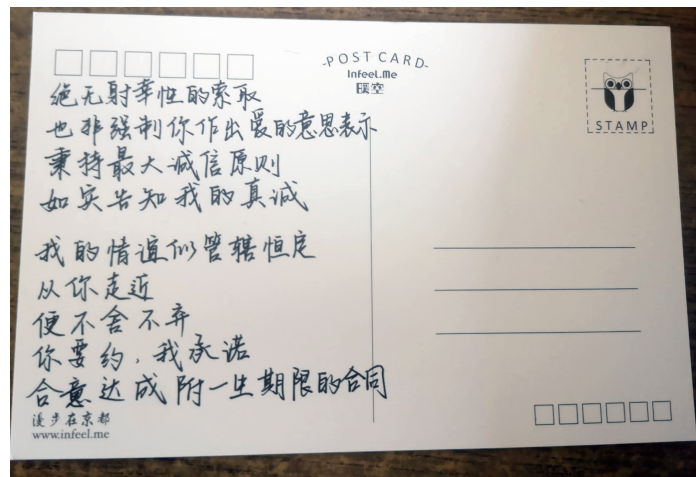 -POST CARD-
Infeel.Me
暖空
STAMP
绝无射幸性的索取
也非强制你作出爱的意思表示
秉持最大诚信原则
如实告知我的真诚
我的情谊似管辖恒定
从你走近
便不舍不弃
你要约，我承诺
合意达成附一生期限的合同
漫步在京都
www.infeel.me